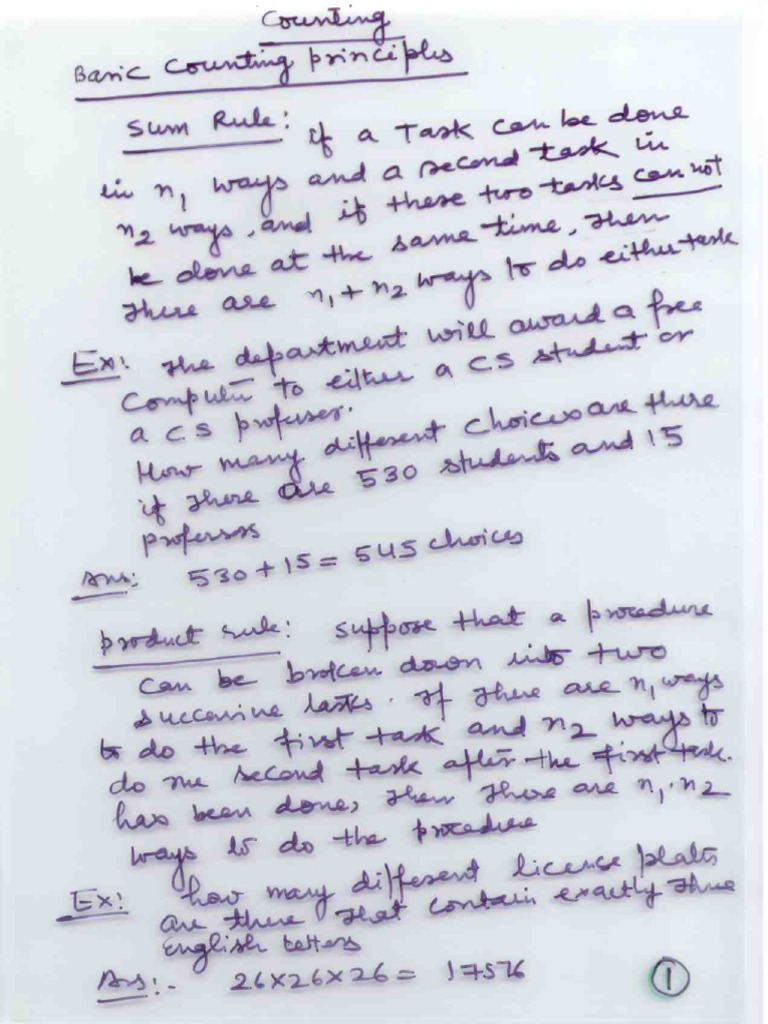 Counting
Basic Counting principles
Sum Rule: if a Task can be done
in n₁ ways and a second task in
n₂ ways, and if these two tasks can not
be done at the same time, then
there are n₁ + n₂ ways to do either task
Ex: The department will award a free
Computer to either a CS student or
a CS professor.
How many different Choices are there
if there are 530 students and 15
professors
Ans: 530 + 15 = 545 choices
product rule: suppose that a procedure
can be broken down into two
successive tasks. If there are n₁ ways
to do the first task and n₂ ways to
do the second task after the first task
has been done, then there are n₁ · n₂
ways to do the procedure
Ex: how many different license plates
are there that contain exactly three
English letters
Ans:- 26 × 26 × 26 = 17576
1